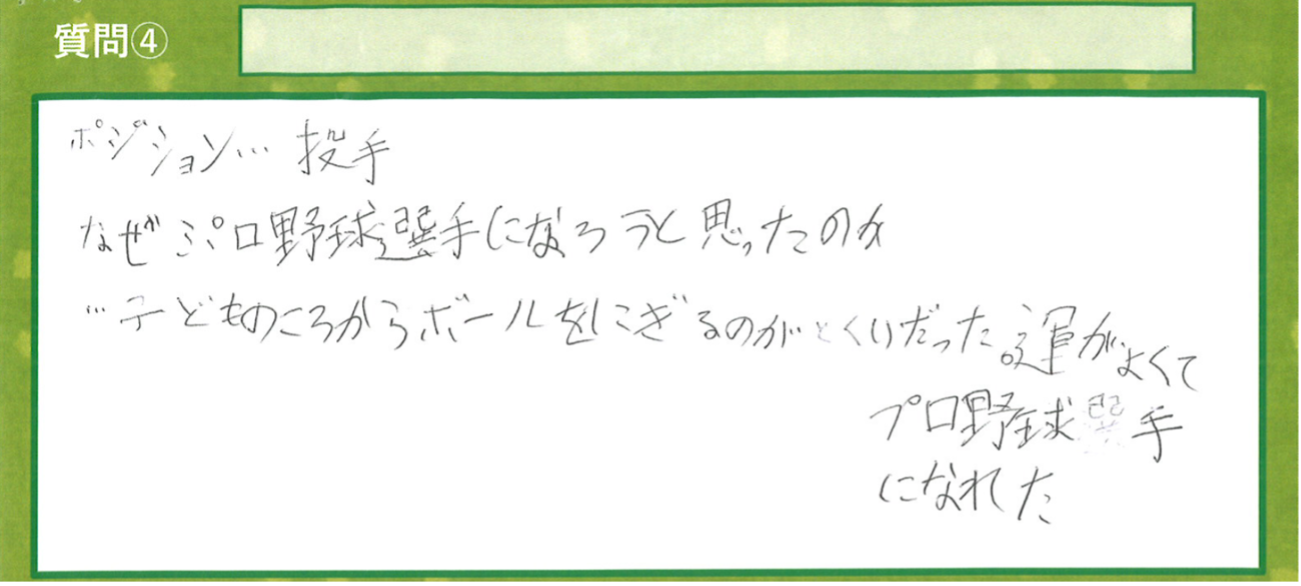 質問④
ポジション… 投手
なぜプロ野球選手になろうと思ったのか
…子どものころからボールをにぎるのがとくいだった。運がよくて
プロ野球選手
になれた